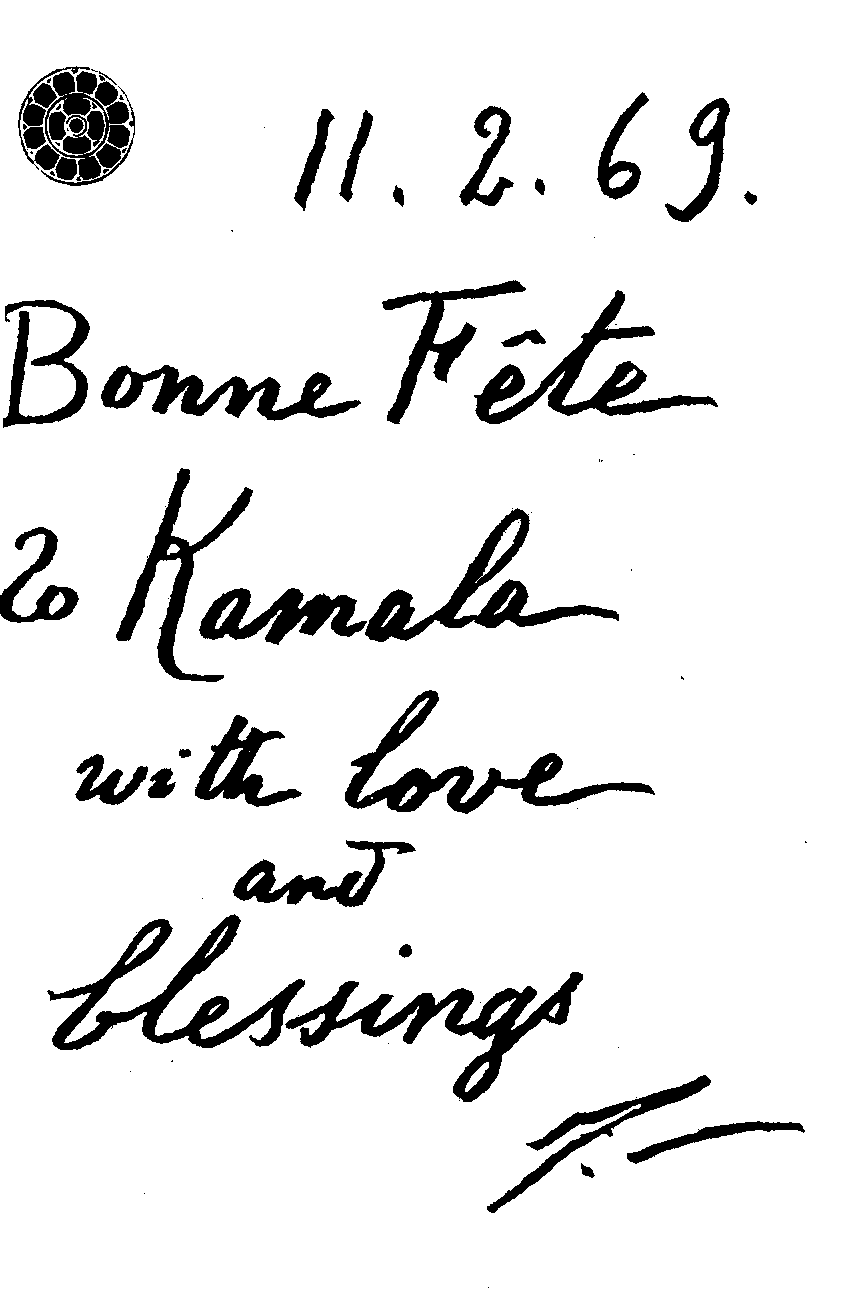 11.2.69.
Bonne Fête
to Kamala
with love
and
blessings